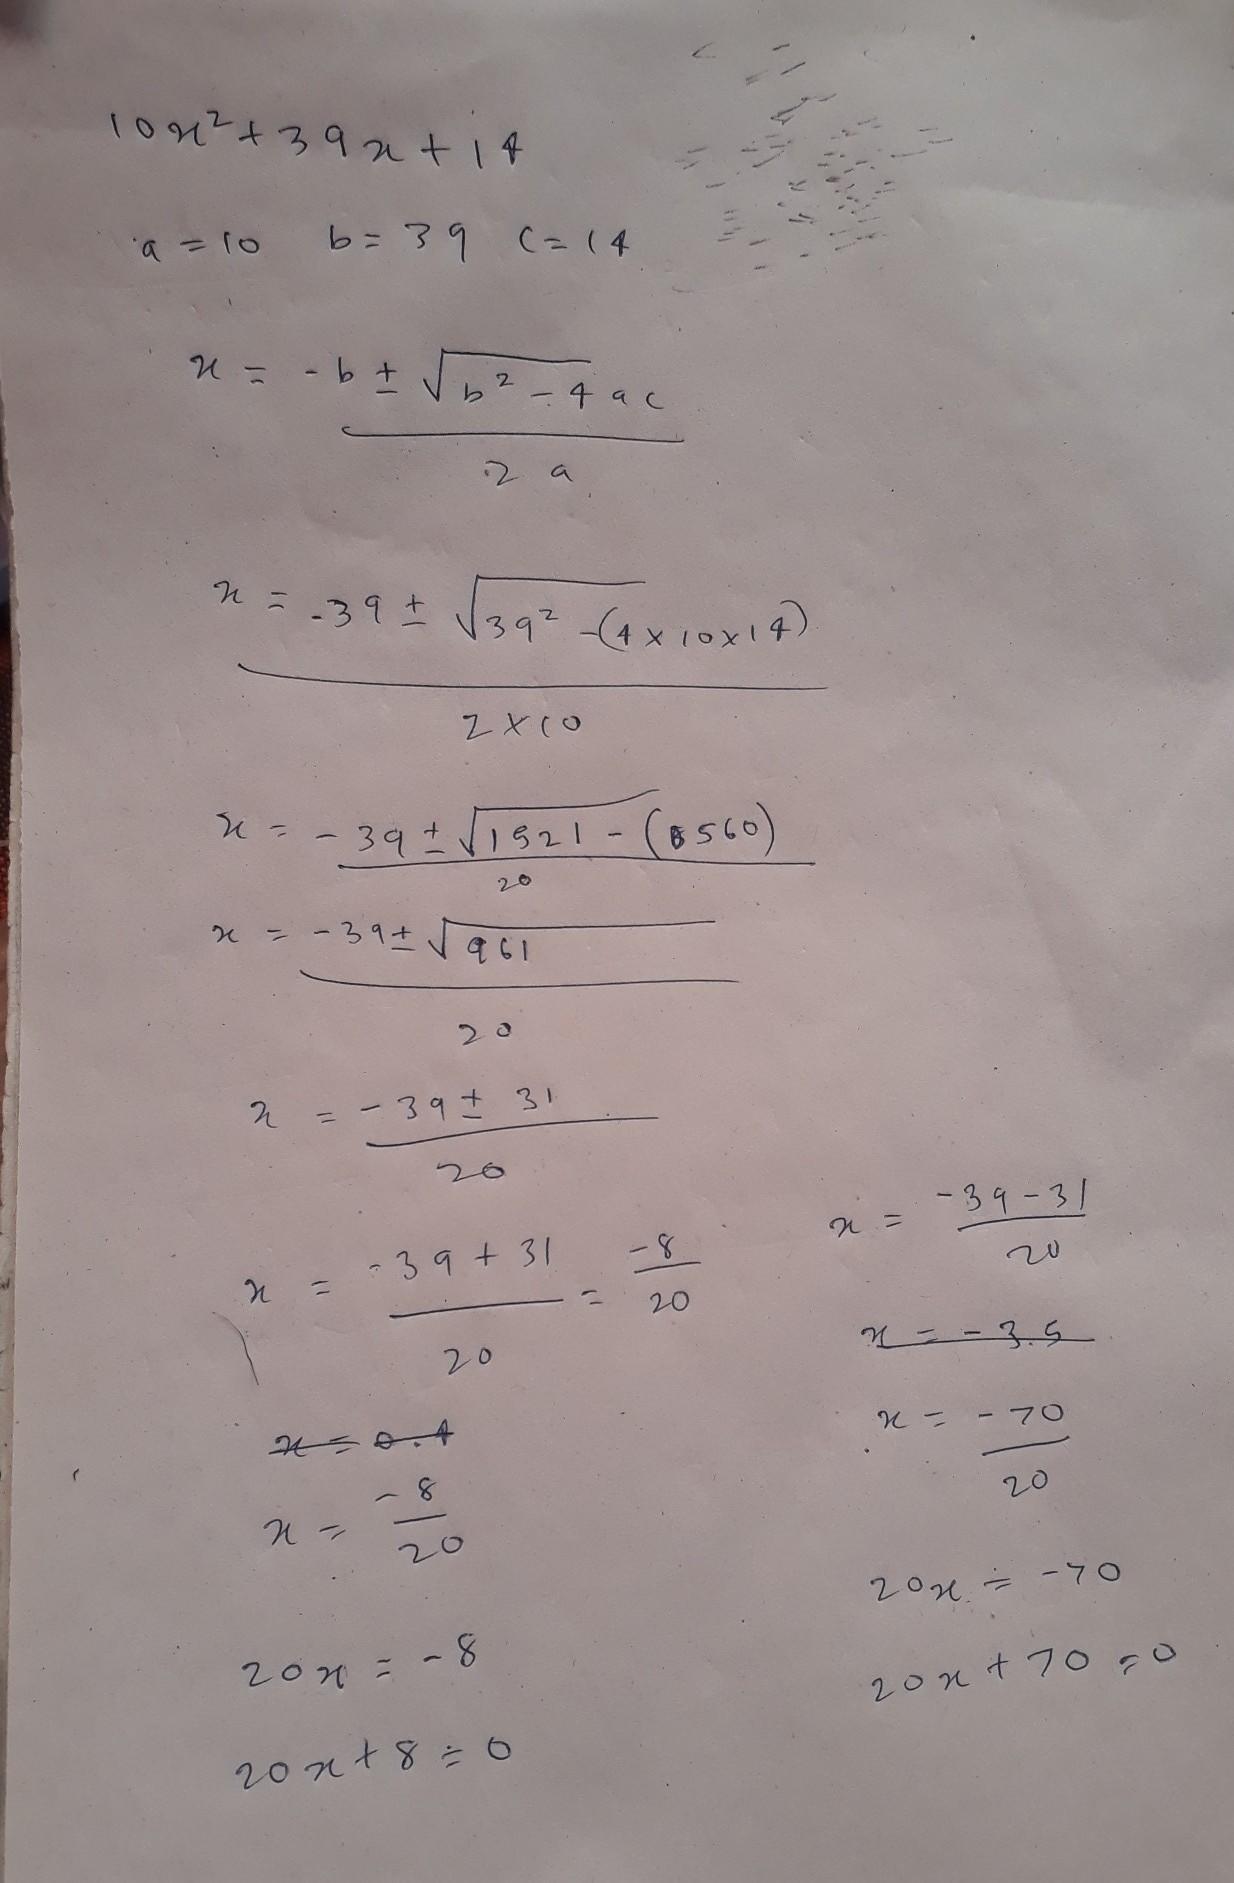 10x²+39x+14
a=10 b=39 c=14
x = -b ± √b²-4ac
2a
x = -39 ± √39²-(4×10×14)
2×10
x = -39 ± √1521-(560)
20
x = -39 ± √961
20
x = -39 ± 31
20
x = -39+31 = -8
20 20
x = 0.4
x = -8
20
20x = -8
20x+8=0
x = -39-31
20
x = -3.5
x = -70
20
20x = -70
20x+70=0